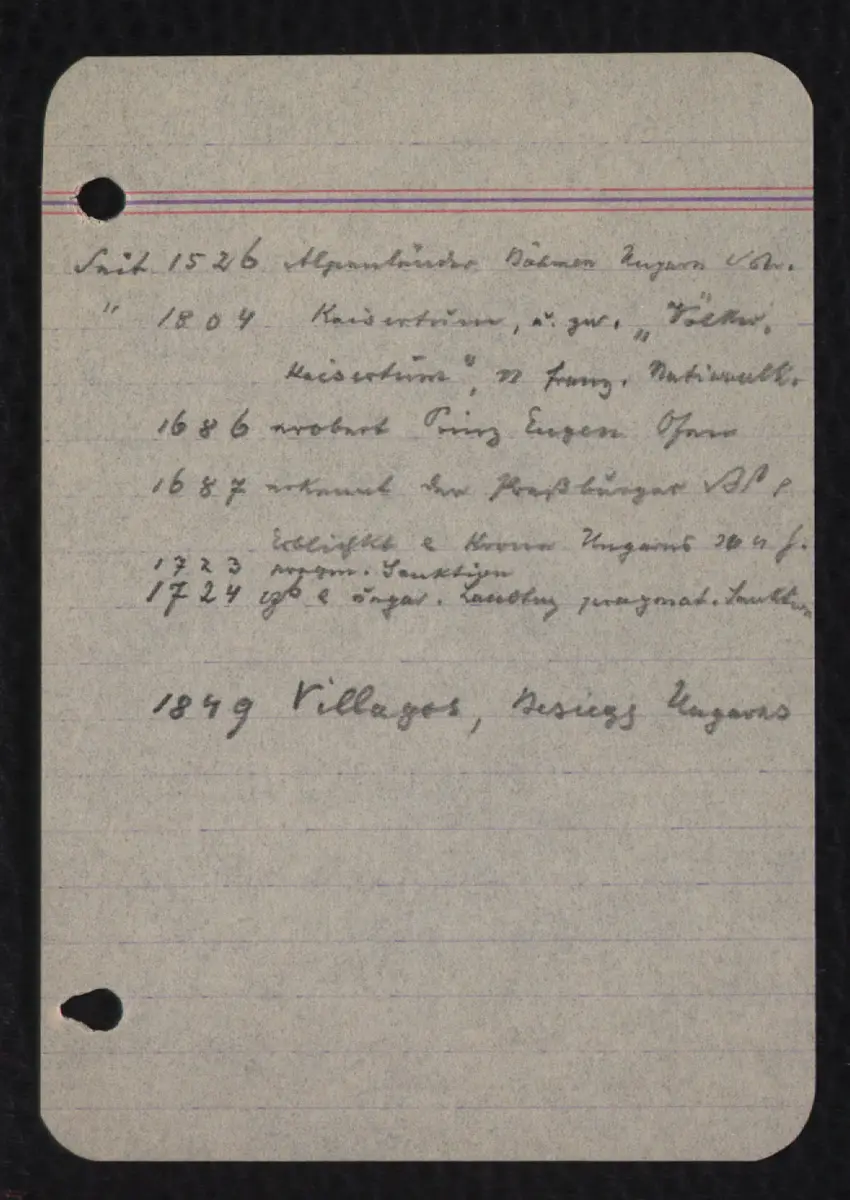 Seit 1526 Alpenländer Böhmen Ungarn
" 1804 Kaisertum, u. zw. „Völker-
Kaisertum", franz. National
1686 erobert Prinz Eugen Ofen
1687 erkennt der Preßburger
Krone Ungarns
1723 pragm. Sanktion
1724 ungar. Landtag pragmat. Sanktion
1849 Villagos, Besiegg Ungarns